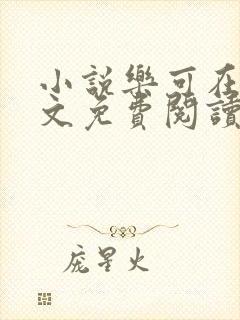 小説樂可在
文免費閱讀
龐星火